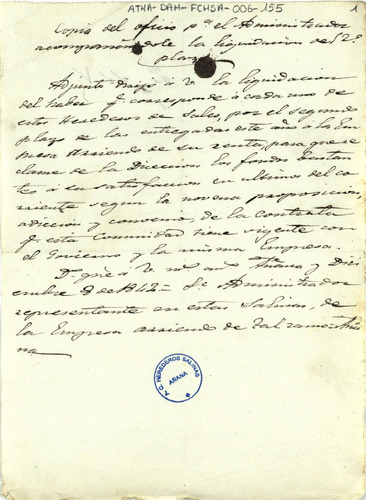 ATHA-DAH-FCHSA-006-155
1
Copia del oficio pª el Administrador
acompañandole la liquidacion del 2º
plazo
Adjunta dirijo á V. la liquidacion
del haber q. corresponde á cada uno de
estos Herederos de Sales, por el segundo
plazo de las entregadas este año á la Em
presa Arriendo de su renta, para que re
clame de la Direccion los fondos bastan
tes á su satisfaccion en ultimos del co
rriente segun la novena proposicion,
adiccion y convenio, de la Contrata
q. esta Comunidad tiene vigente con
el Govierno y la misma Empresa.
Ds. gue. á V. ms. as. Añana y Dici
embre 8 de 1842 = Sr. Administrador
representante en estas Salinas, de
la Empresa arriendo de tal ramo. Aña
na
A.C. HEREDEROS SALINAS
AÑANA